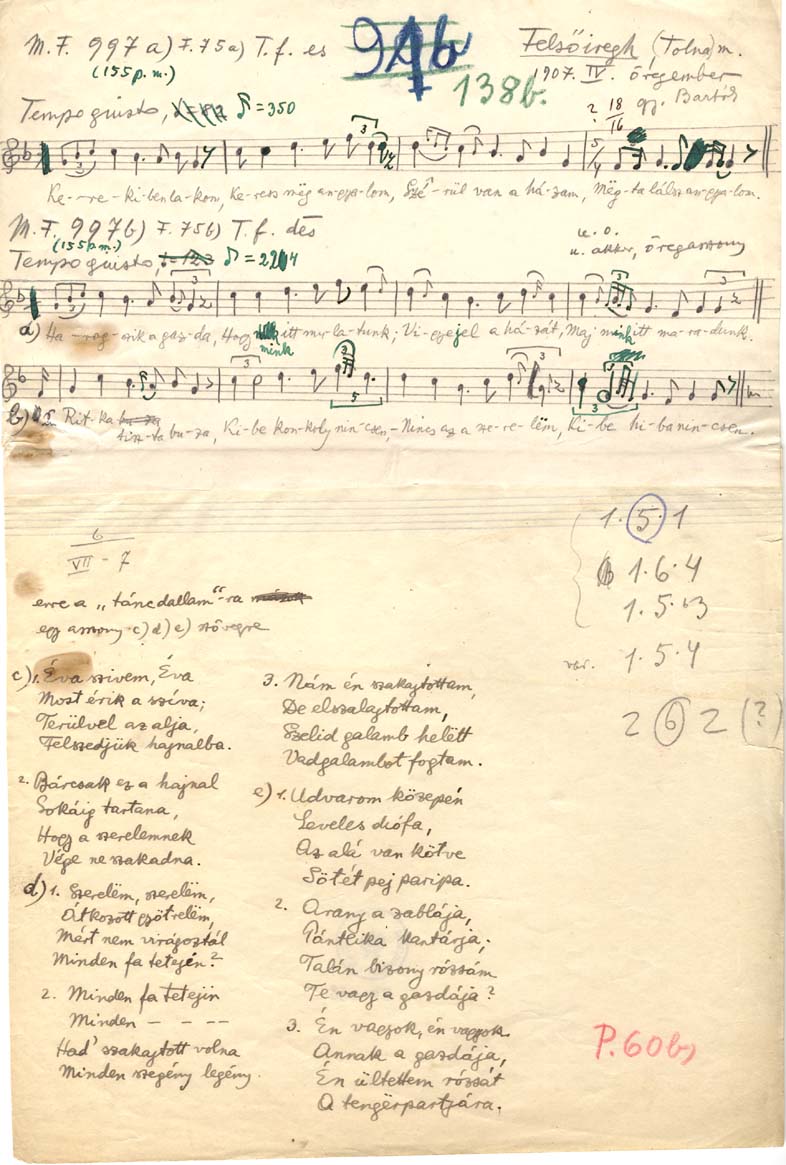 M.F. 997a) F.75a) T.f. es
94b
Felsőiregh (Tolna)m.
(155 p.m.)
138b.
1907. IV. öregember
gy. Bartók
Tempo giusto, ♪=350
? 18/16
5/4
Ke-re-ki benlakom, Keress mëg angyalom, Szé-rül van a házam, Mëg-találsz angyalom.
M.F. 997b) F.75b) T.f. des
(155p.m.)
u. o.
u. akkor, öregasszony
Tempo giusto, ♪=224
a) Ha-rag-szik a gaz-da, Hogy mink itt mu-la-tunk; Vi-gye jel a há-zát, Maj mink itt ma-ra-dunk.
b) Rit-ka
tisz-ta bu-za, Ki-be kon-koly nin-csen,- Nincs az a sze-re-lëm, Ki-be hi-ba nin-csen.
6
VII - 7
1. 5. 1
1. 6. 4
1. 5. b3
var. 1. 5. 4
2 6 2 (?)
erre a „táncdallam"-ra
egy asszony c) d) e) szövegre
c) 1. Éva szivem, Éva
Most érik a szíva;
Terülvel az alja,
Felszedjük hajnalba.
2. Bárcsak ez a hajnal
Sokáig tartana,
Hogy a szerelemnek
Vége ne szakadna.
d) 1. Szerelëm, szerelëm,
Átkozott gyötrelëm,
Mért nem virágoztál
Minden fa tetején?
2. Minden fa tetejin
Minden — — — —
Had' szakajtott volna
Minden szegény legény.
3. Nám én szakajtottam,
De elszalajtottam,
Szelid galamb helëtt
Vadgalambot fogtam.
e) 1. Udvarom közepén
Leveles diófa,
Az alá van kötve
Sötét pej paripa.
2. Arany a zablája,
Pántlika kantárja;
Talán bizony rózsám
Te vagy a gazdája?
3. Én vagyok, én vagyok
Annak a gazdája,
Én ültettem rózsát
A tengërpartjára.
P.60b)